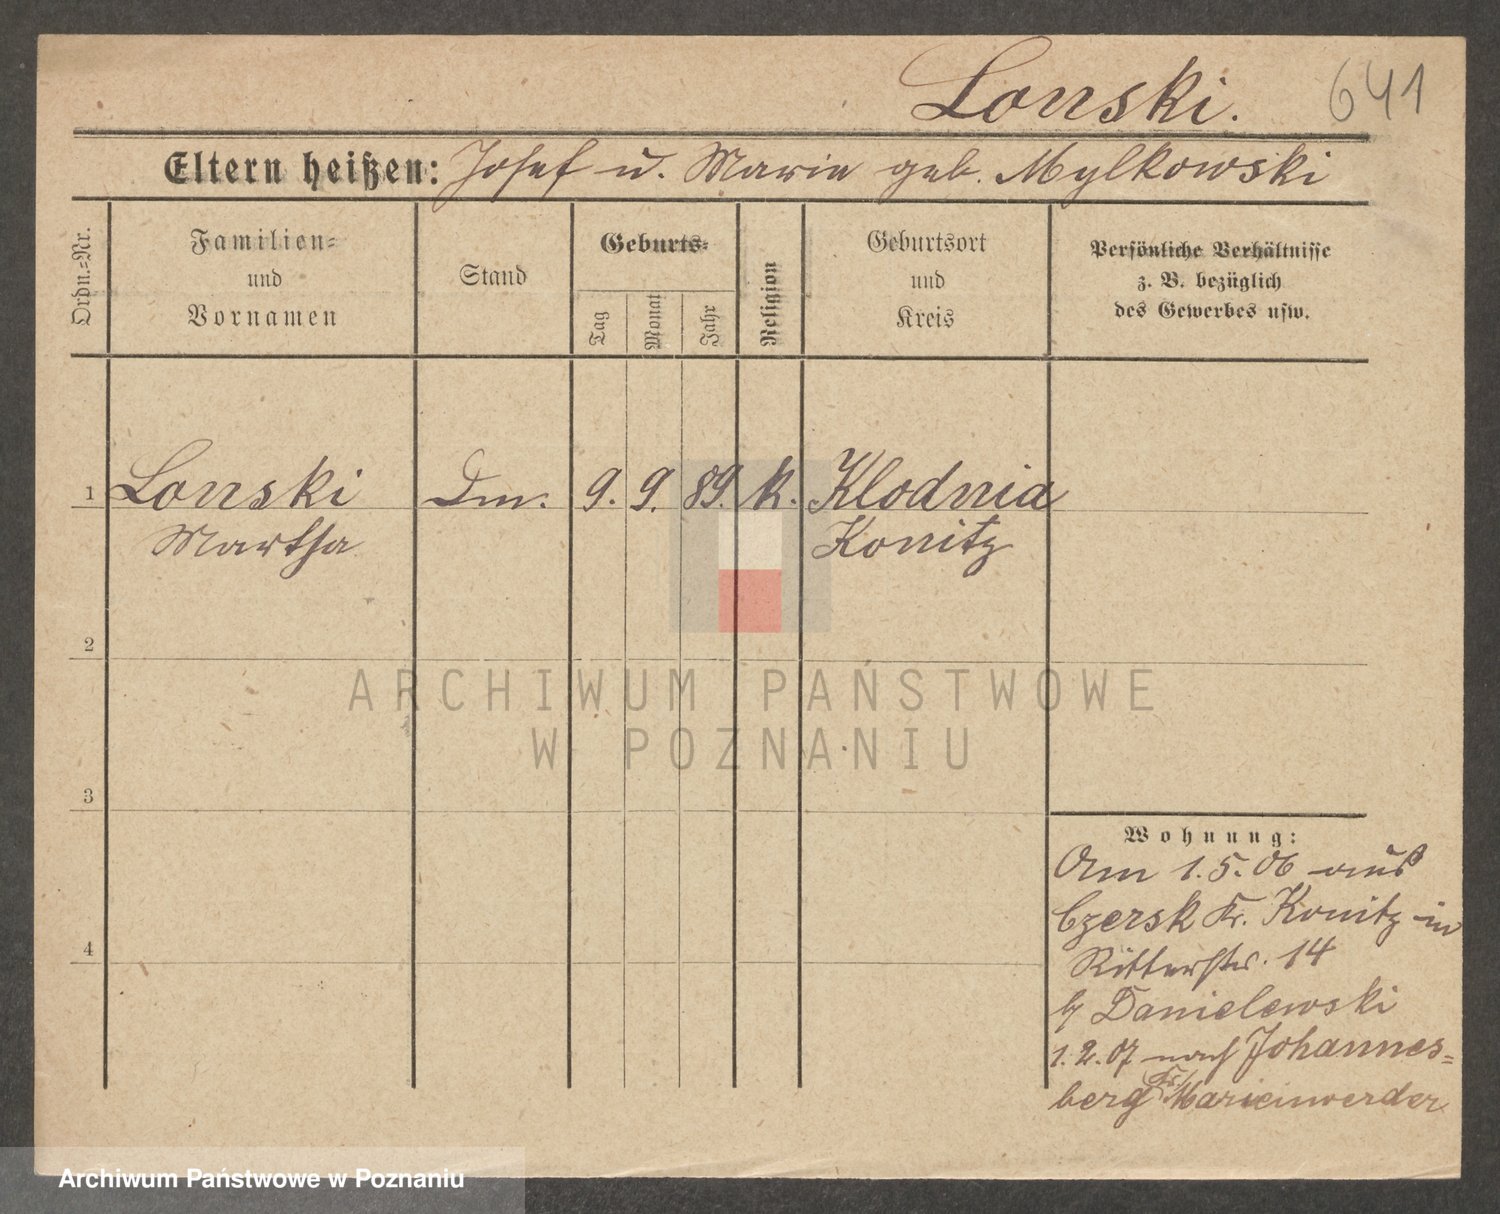 Lonski. 641
Eltern heißen: Josef u. Marie geb. Mylkowski
Ordn.=Nr.
Familien=
und
Vornamen
Stand
Geburts=
Tag
Monat
Jahr
Religion
Geburtsort
und
Kreis
Persönliche Verhältnisse
z. B. bezüglich
des Gewerbes usw.
1 Lonski Dm. 9. 9. 89. k. Klodnia
Martha Konitz
2
3
4
Wohnung:
Am 1.5.06 aus
Czersk Kr. Konitz in
Ritterstr. 14
b/ Danielewski
1.2.07 nach Johannes=
berg Kr/ Marienwerder
ARCHIWUM PAŃSTWOWE
W POZNANIU
Archiwum Państwowe w Poznaniu